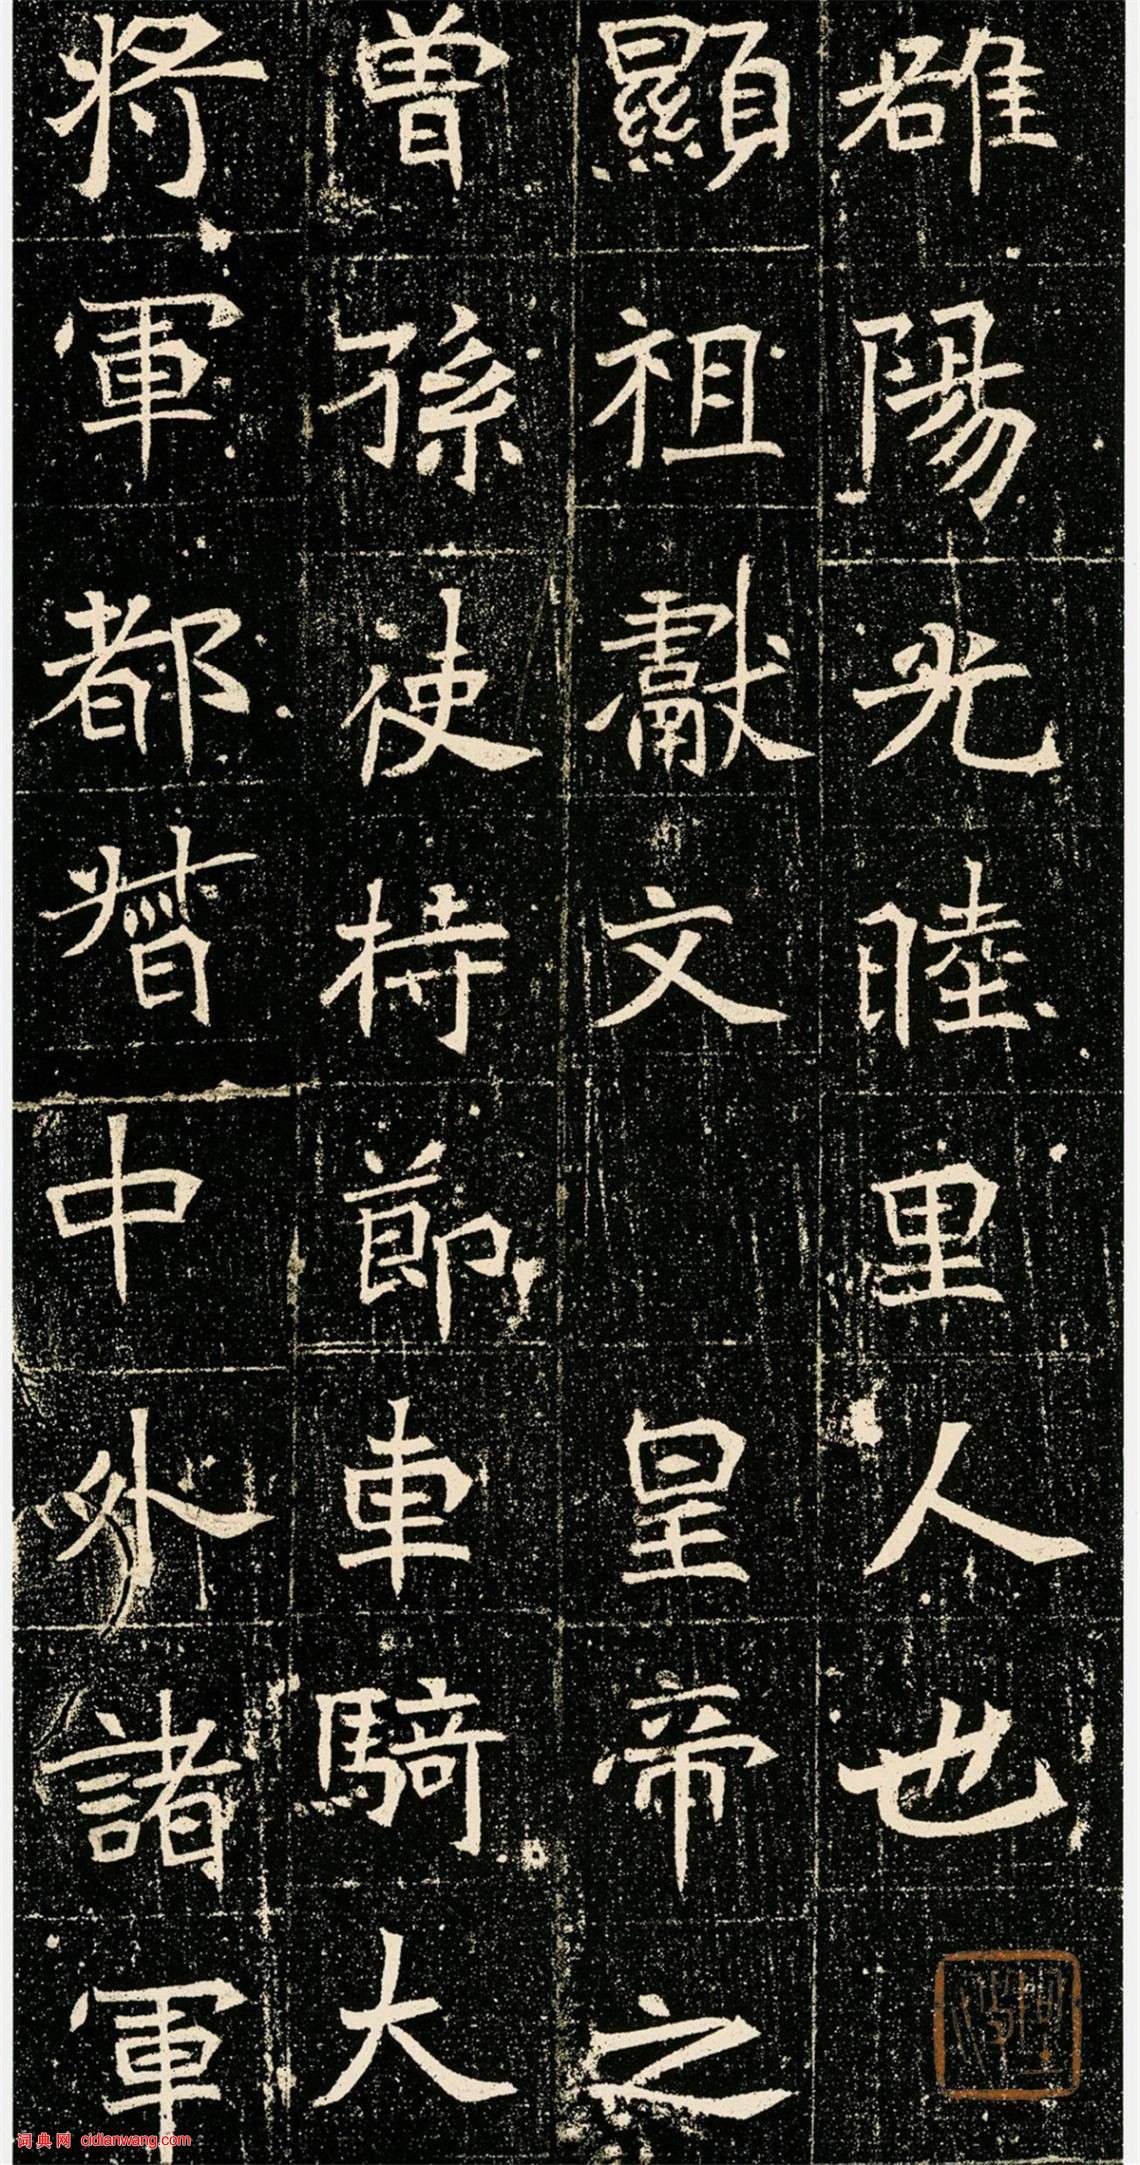 雒陽光睦里人也
顯祖獻文皇帝之
曾孫使持節車騎大
將軍都督中外諸軍
词典网 cidianwang.com